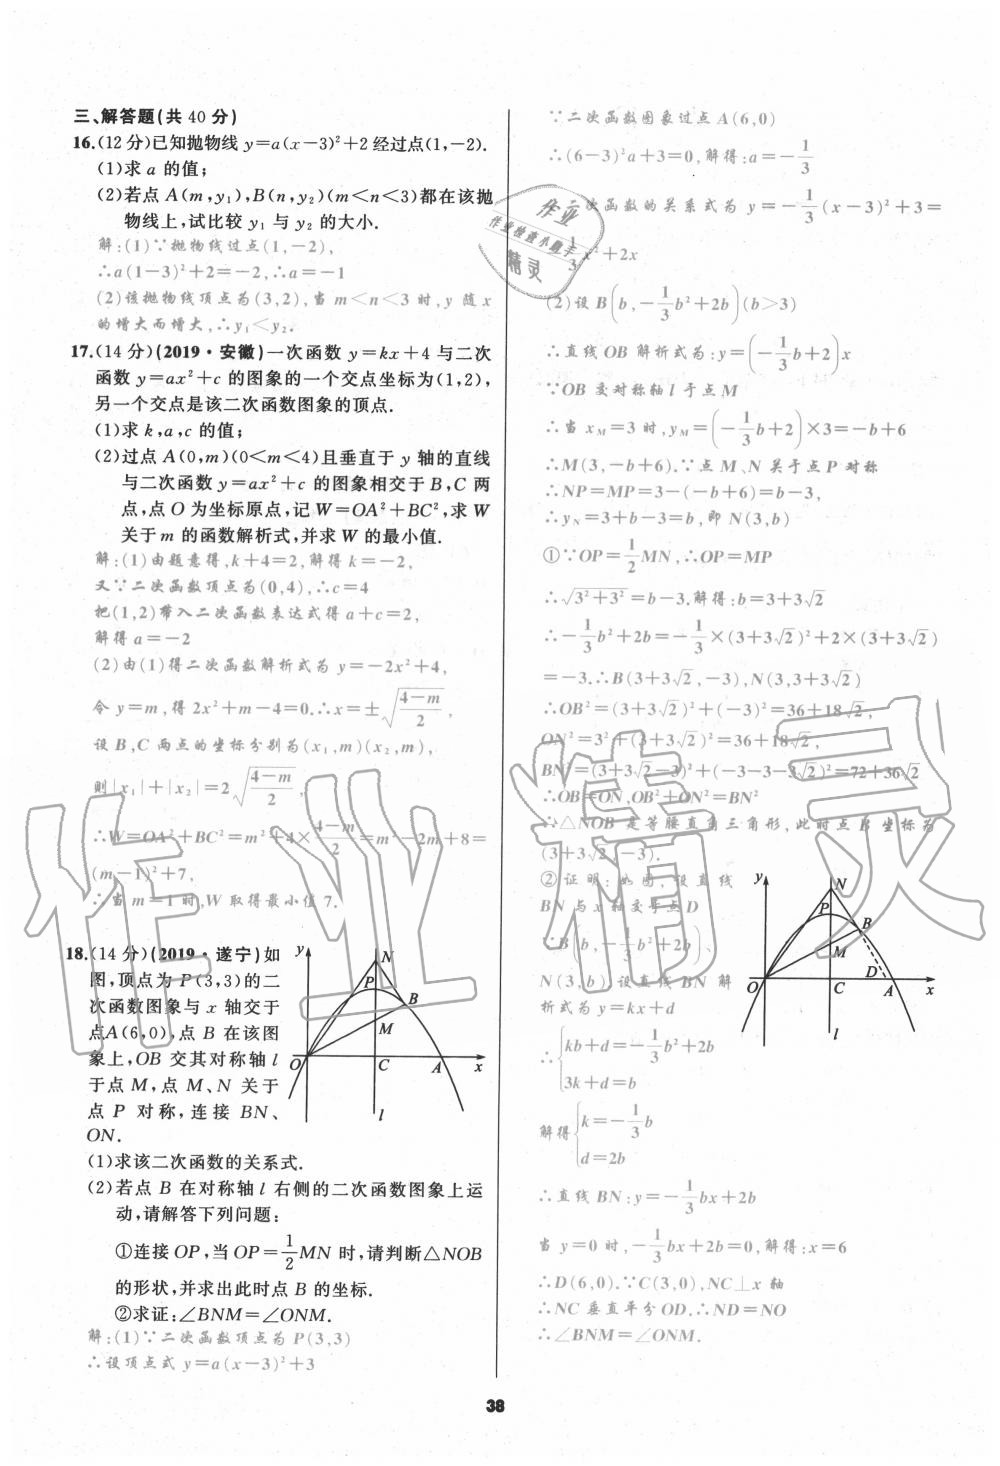 三、解答题(共 40 分)
16.(12 分)已知抛物线 y=a(x-3)²+2 经过点(1,-2).
(1)求 a 的值;
(2)若点 A(m,y₁),B(n,y₂)(m<n<3)都在该抛
物线上,试比较 y₁ 与 y₂ 的大小.
解:(1)∵抛物线过点(1,-2),
∴a(1-3)²+2=-2,∴a=-1
(2)该抛物线顶点为(3,2),当 m<n<3 时,y 随 x
的增大而增大,∴y₁<y₂.
17.(14 分)(2019·安徽)一次函数 y=kx+4 与二次
函数 y=ax²+c 的图象的一个交点坐标为(1,2),
另一个交点是该二次函数图象的顶点.
(1)求 k,a,c 的值;
(2)过点 A(0,m)(0<m<4)且垂直于 y 轴的直线
与二次函数 y=ax²+c 的图象相交于 B,C 两
点,点 O 为坐标原点,记 W=OA²+BC²,求 W
关于 m 的函数解析式,并求 W 的最小值.
解:(1)由题意得,k+4=2,解得 k=-2,
又∵二次函数顶点为(0,4),∴c=4
把(1,2)带入二次函数表达式得 a+c=2,
解得 a=-2
(2)由(1)得二次函数解析式为 y=-2x²+4,
令 y=m,得 2x²+m-4=0.∴x=±√((4-m)/2),
设 B,C 两点的坐标分别为(x₁,m)(x₂,m),
则|x₁|+|x₂|=2√((4-m)/2),
∴W=OA²+BC²=m²+4×(4-m)/2=m²-2m+8=
(m-1)²+7,
∴当 m=1 时,W 取得最小值 7.
18.(14 分)(2019·遂宁)如
图,顶点为 P(3,3)的二
次函数图象与 x 轴交于
点A(6,0),点 B 在该图
象上,OB 交其对称轴 l
于点 M,点 M、N 关于
点 P 对称,连接 BN、
ON.
y
N
P
B
M
O
C
A
x
l
(1)求该二次函数的关系式.
(2)若点 B 在对称轴 l 右侧的二次函数图象上运
动,请解答下列问题:
①连接 OP,当 OP=1/2MN 时,请判断△NOB
的形状,并求出此时点 B 的坐标.
②求证:∠BNM=∠ONM.
解:(1)∵二次函数顶点为 P(3,3)
∴设顶点式 y=a(x-3)²+3
∵二次函数图象过点 A(6,0)
∴(6-3)²a+3=0,解得:a=-1/3
次函数的关系式为 y=-1/3(x-3)²+3=
1/3x²+2x
(2)设 B(b,-1/3b²+2b)(b>3)
∴直线 OB 解析式为:y=(-1/3b+2)x
∵OB 交对称轴 l 于点 M
∴当 xM=3 时,yM=(-1/3b+2)×3=-b+6
∴M(3,-b+6).∵点 M、N 关于点 P 对称
∴NP=MP=3-(-b+6)=b-3,
∴yN=3+b-3=b,即 N(3,b)
①∵OP=1/2MN,∴OP=MP
∴√(3²+3²)=b-3.解得:b=3+3√2
∴-1/3b²+2b=-1/3×(3+3√2)²+2×(3+3√2)
=-3.∴B(3+3√2,-3),N(3,3+3√2)
∴OB²=(3+3√2)²+(-3)²=36+18√2,
ON²=3²+(3+3√2)²=36+18√2,
BN²=(3+3√2-3)²+(-3-3-3√2)²=72+36√2
∴OB=ON,OB²+ON²=BN²
∴△NOB 是等腰直角三角形,此时点 B 坐标为
(3+3√2,-3).
②证明:如图,设直线
BN 与 x 轴交于点 D
∵B(b,-1/3b²+2b)、
N(3,b).设直线 BN 解
析式为 y=kx+d
∴{kb+d=-1/3b²+2b
3k+d=b
解得{k=-1/3b
d=2b
∴直线 BN:y=-1/3bx+2b
当 y=0 时,-1/3bx+2b=0,解得:x=6
∴D(6,0).∵C(3,0),NC⊥x 轴
∴NC 垂直平分 OD.∴ND=NO
∴∠BNM=∠ONM.
y
N
P
B
M
D
O
C
A
x
l
作业
作业检查小助手
精灵
作业精灵
38